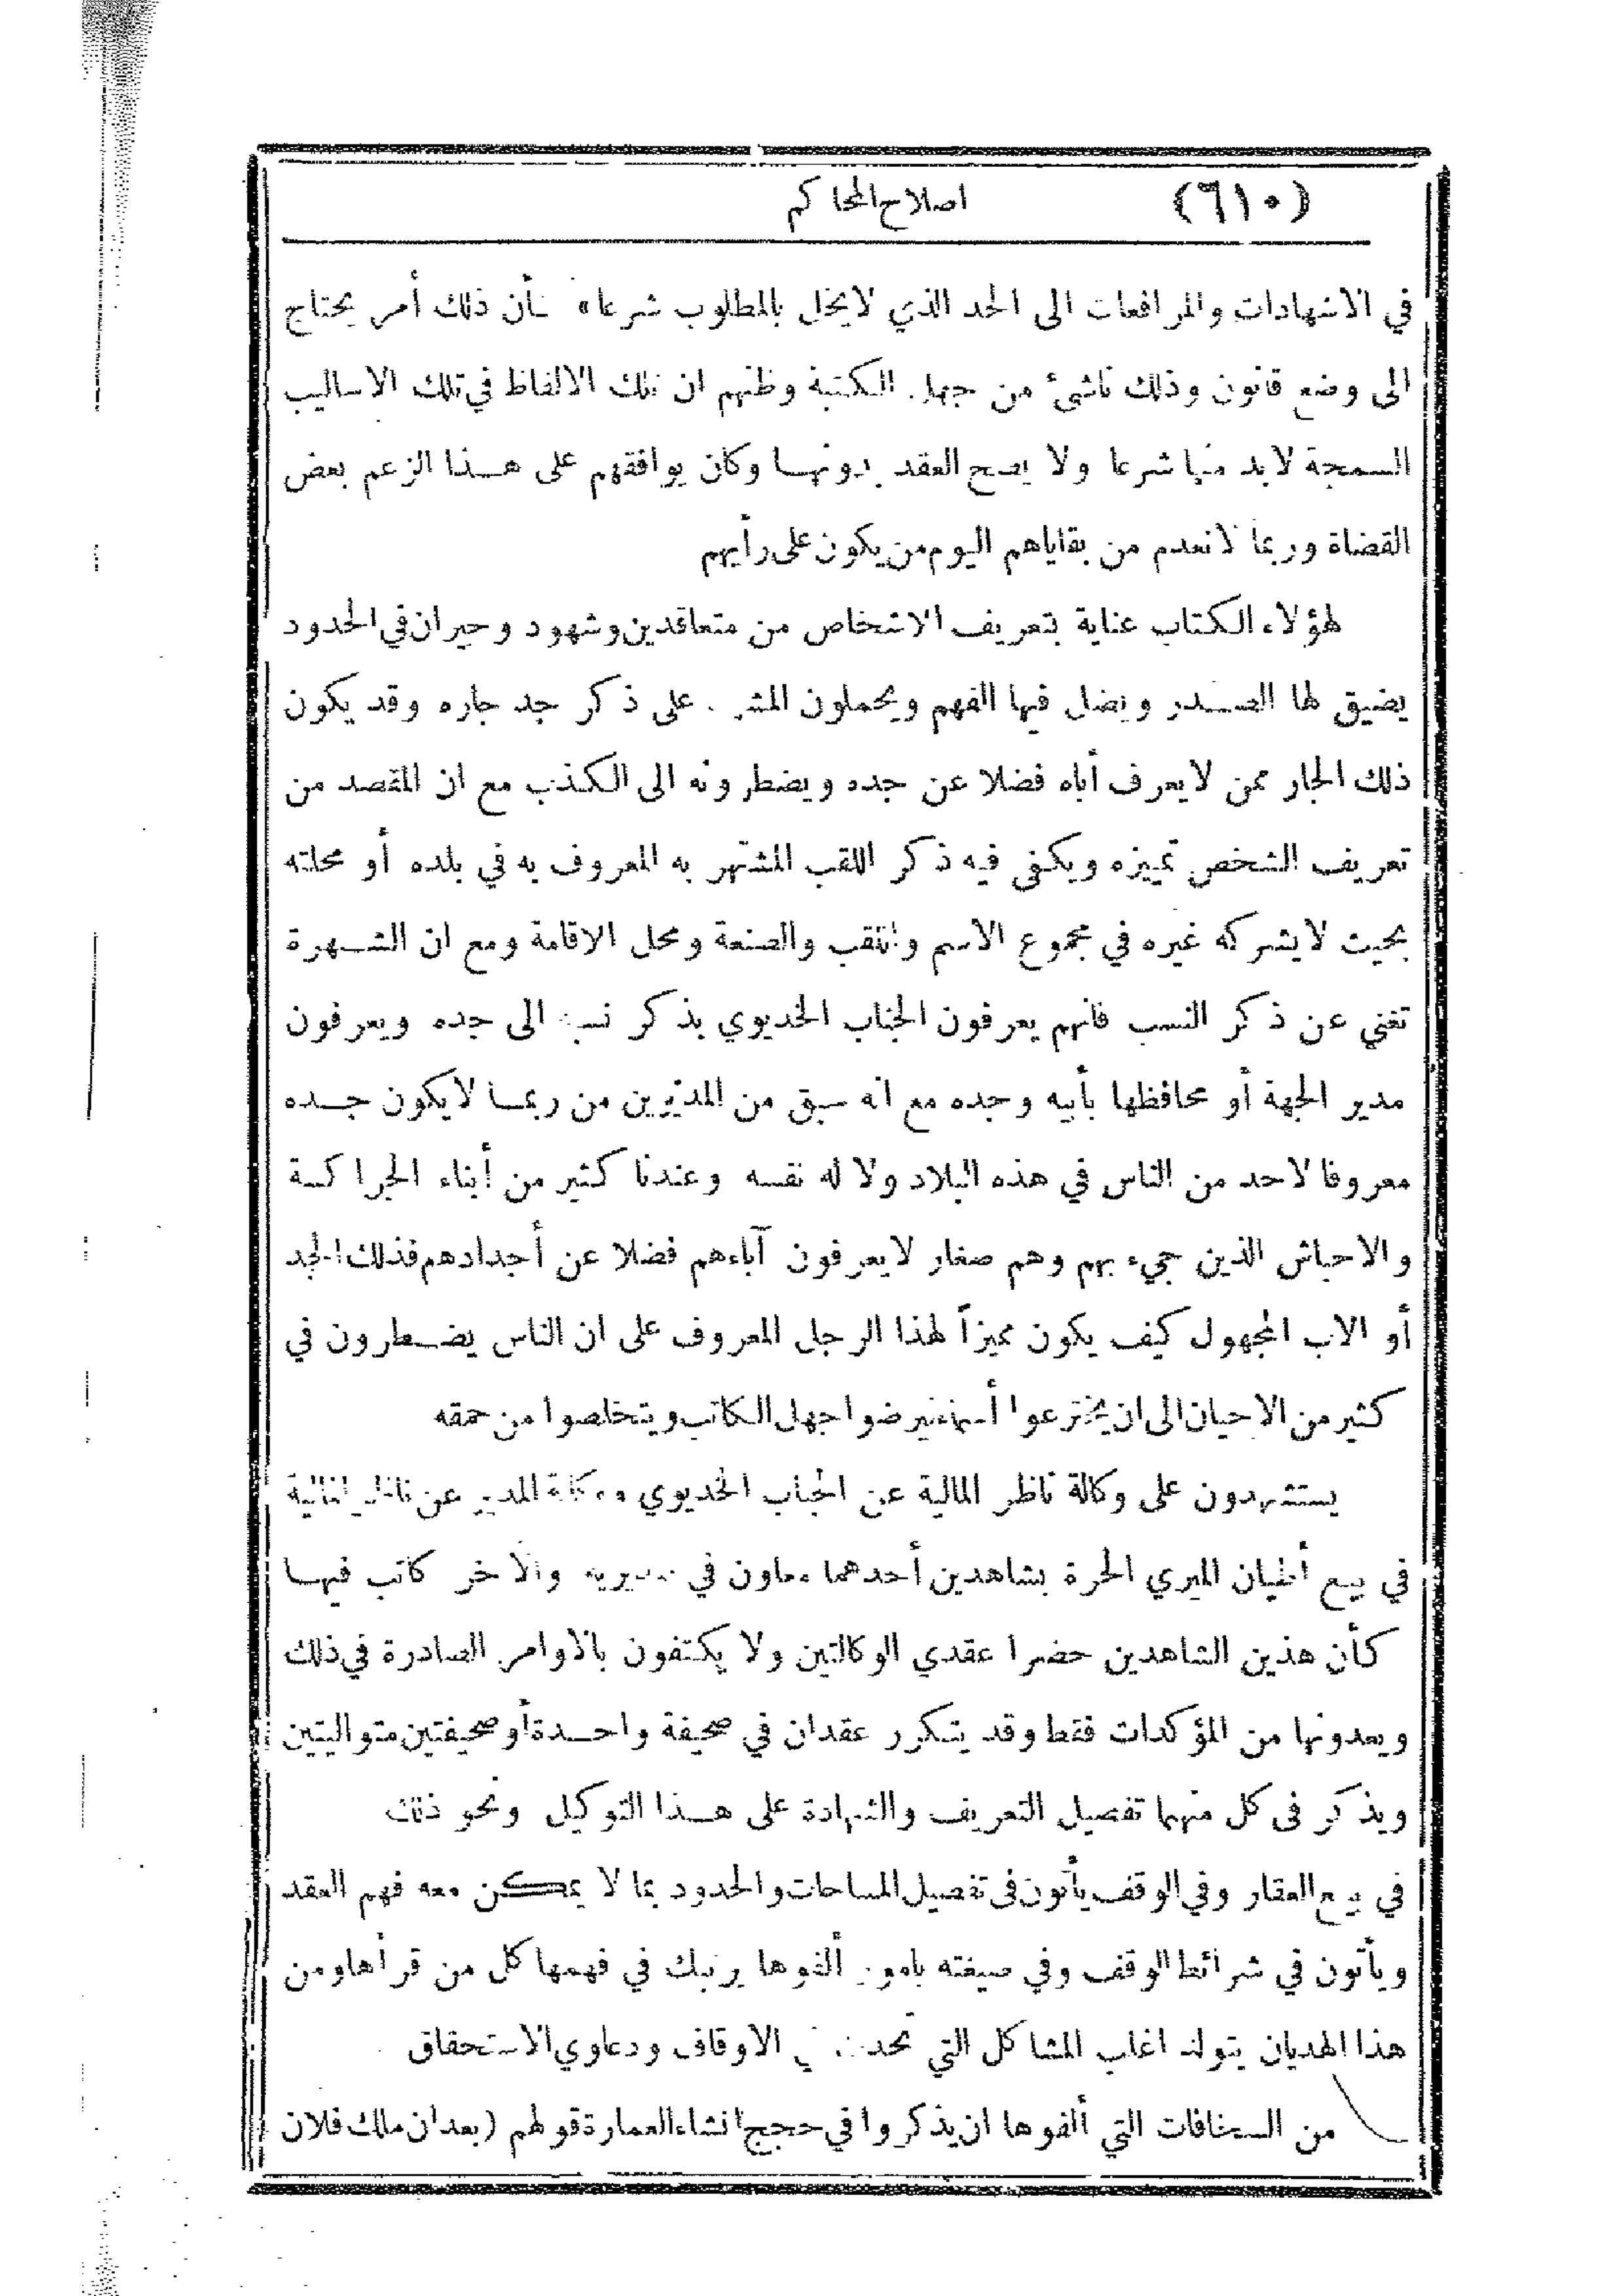 (٦١٠) اصلاح المحاكم
في الاشهادات والمرافعات الى الحد الذي لايخل بالمطلوب شرعا» كأن ذلك أمر يحتاج
الى وضع قانون وذلك ناشئ من جهل الكتبة وظنهم ان تلك الالفاظ في تلك الاساليب
السمجة لابد منها شرعا ولا يصح العقد بدونهـا وكان يوافقهم على هـذا الزعم بعض
القضاة وربما لانعدم من بقاياهم اليوم من يكون على رأيهم
لهؤلاء الكتاب عناية بتعريف الاشخاص من متعاقدين وشهود وجيران في الحدود
يضيق لها الصـدر ويضل فيها الفهم ويحملون على ذكر جد جاره وقد يكون
ذلك الجار ممن لايعرف أباه فضلا عن جده ويضطرونه الى الكذب مع ان المقصد من
تعريف الشخص تمييزه ويكفى فيه ذكر اللقب المشتهر به المعروف به في بلده أو محلته
بحيث لايشركه غيره في مجموع الاسم واللقب والصنعة ومحل الاقامة ومع ان الشـهرة
تغني عن ذكر النسب فانهم يعرفون الجناب الخديوي بذكر نسبه الى جده ويعرفون
مدير الجهة أو محافظها بأبيه وجده مع انه سبق من المديرين من ربمـا لايكون جـده
معروفا لاحد من الناس في هذه البلاد ولا له نفسه وعندنا كثير من أبناء الجراكسة
والاحباش الذين جيء بهم وهم صغار لايعرفون آباءهم فضلا عن أجدادهم فذلك الجد
أو الاب المجهول كيف يكون مميزاً لهذا الرجل المعروف على ان الناس يضـطرون في
كثير من الاحيان الى ان يخترعوا أسماء ليرضوا جهل الكاتب ويتخلصوا من حمقه
يستشهدون على وكالة ناظر المالية عن الجناب الخديوي ووكالة المدير عن ناظر المالية
في بيع أطيان الميري الحرة بشاهدين أحدهما معاون في مديرية والآخر كاتب فيهـا
كأن هذين الشاهدين حضرا عقدي الوكالتين ولا يكتفون بالاوامر الصادرة في ذلك
ويعدونها من المؤكدات فقط وقد يتكرر عقدان في صحيفة واحـدة أو صحيفتين متواليتين
ويذكر فى كل منهما تفصيل التعريف والشهادة على هـذا التوكيل ونحو ذلك
في بيع العقار وفي الوقف يأتون فى تفصيل المساحات والحدود بما لا يمكن معه فهم العقد
ويأتون في شرائط الوقف وفي صيغته بامور ألفوها يرتبك في فهمها كل من قرأها ومن
هذا الهذيان يتولد اغلب المشاكل التي تحدث في الاوقاف ودعاوي الاستحقاق
من السخافات التي ألفوها ان يذكروا في حجج انشاء العمارة قولهم (بعد ان ملك فلان